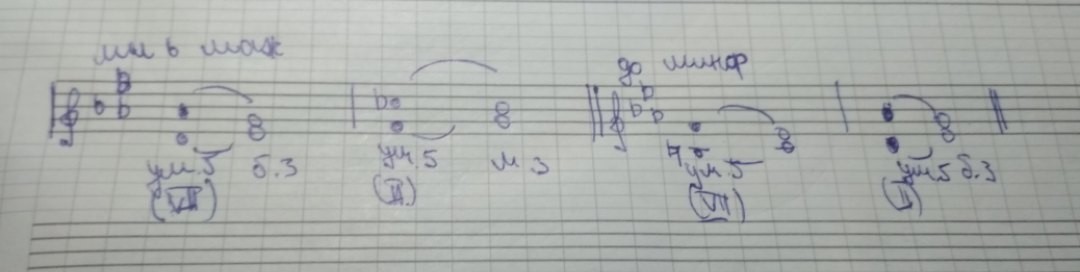 ми b маж
до минор
ум.5 б.3
ум.5 м.3
ум.5
ум.5 б.3
(VII)
(II)
(VII)
(II)